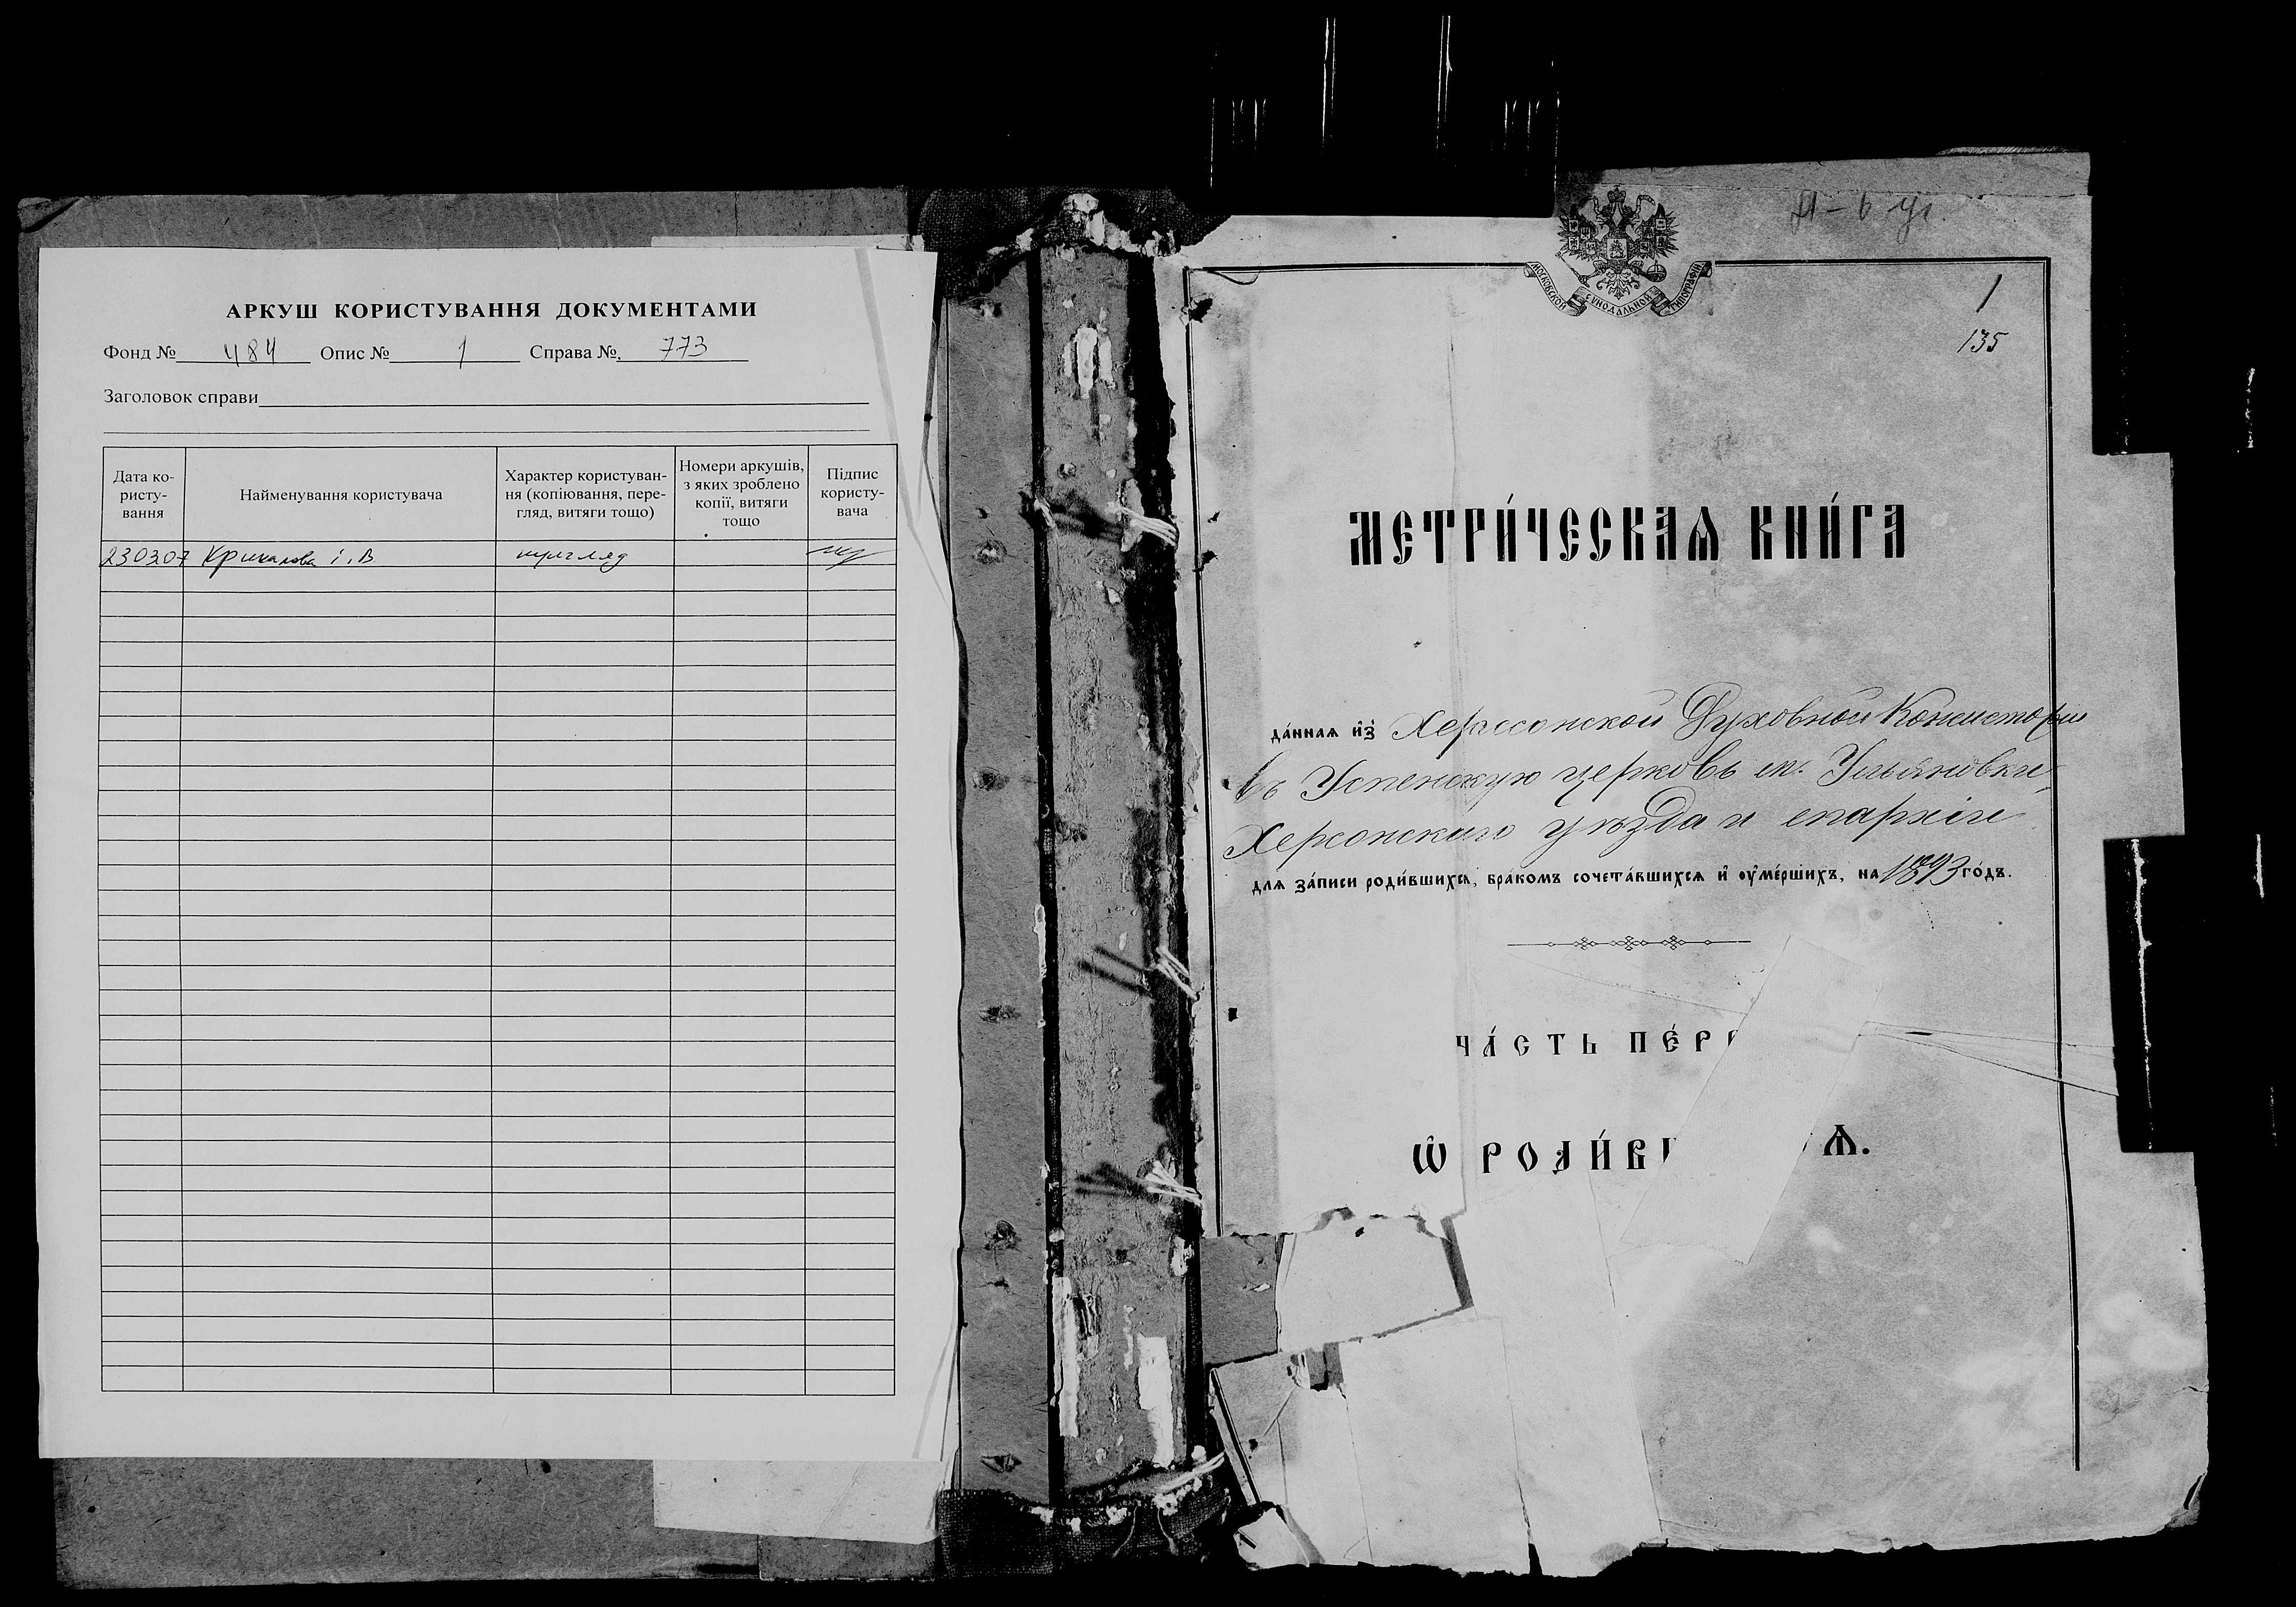 АРКУШ КОРИСТУВАННЯ ДОКУМЕНТАМИ
Фонд № 484 Опис № 1 Справа №. 773
Заголовок справи
Дата ко-
ристу-
вання
Найменування користувача
Характер користуван-
ня (копіювання, пере-
гляд, витяги тощо)
Номери аркушів,
з яких зроблено
копії, витяги
тощо
Підпис
користу-
вача
230307 Крикалова І.В. перегляд
МОСКОВСКОЙ СУНОДАЛЬНОЙ ТИПОГРАФІИ
1
135
МЕТРИ́ЧЕСКАѦ КНИ́ГА
да́ннаѧ и҆з̾ Херсонской Духовной Консисторіи
въ Успенскую церковь м. Ульяновки
Херсонского уѣзда и епархіи
длѧ за́писи роди́вшихсѧ, бра́комъ сочета́вшихсѧ и҆ ᲂу҆ме́ршихъ, на 1893 го́дъ.
ЧА́СТЬ ПЕ́РВ
Ѡ҆ РОДИ́ВШ Ѧ.